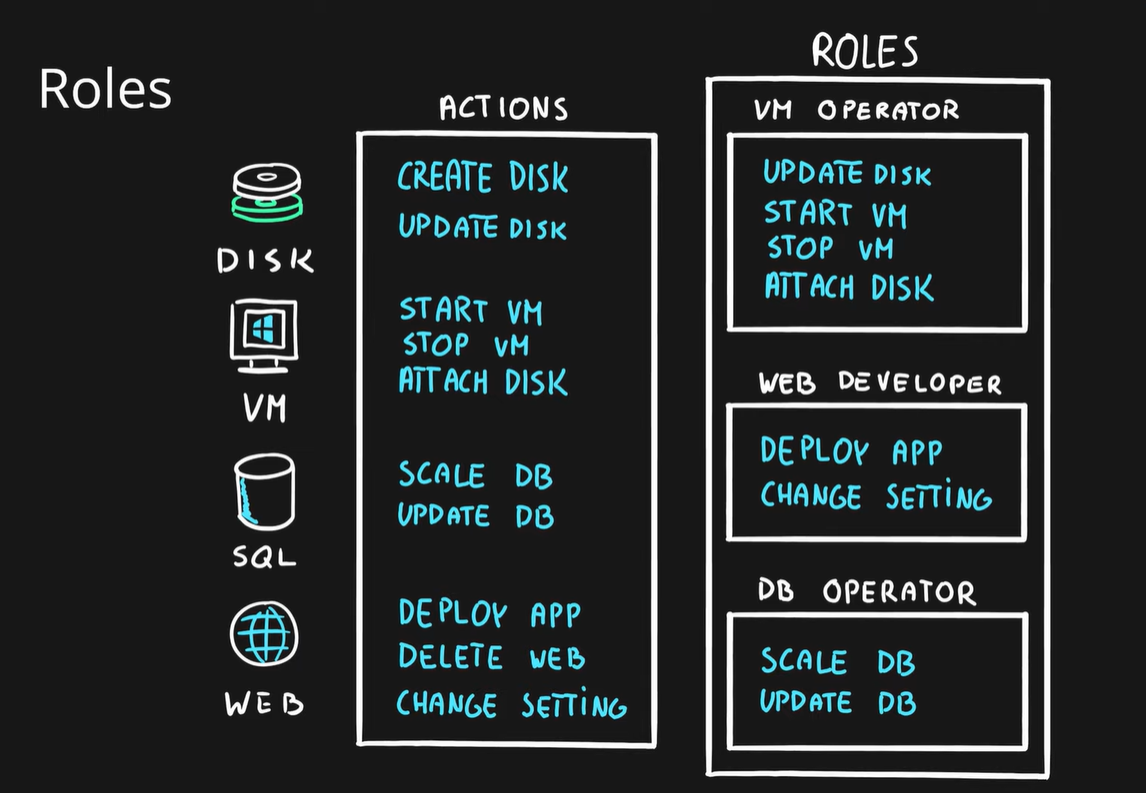 Roles
ACTIONS
CREATE DISK
UPDATE DISK
START VM
STOP VM
ATTACH DISK
SCALE DB
UPDATE DB
DEPLOY APP
DELETE WEB
CHANGE SETTING
DISK
VM
SQL
WEB
ROLES
VM OPERATOR
UPDATE DISK
START VM
STOP VM
ATTACH DISK
WEB DEVELOPER
DEPLOY APP
CHANGE SETTING
DB OPERATOR
SCALE DB
UPDATE DB